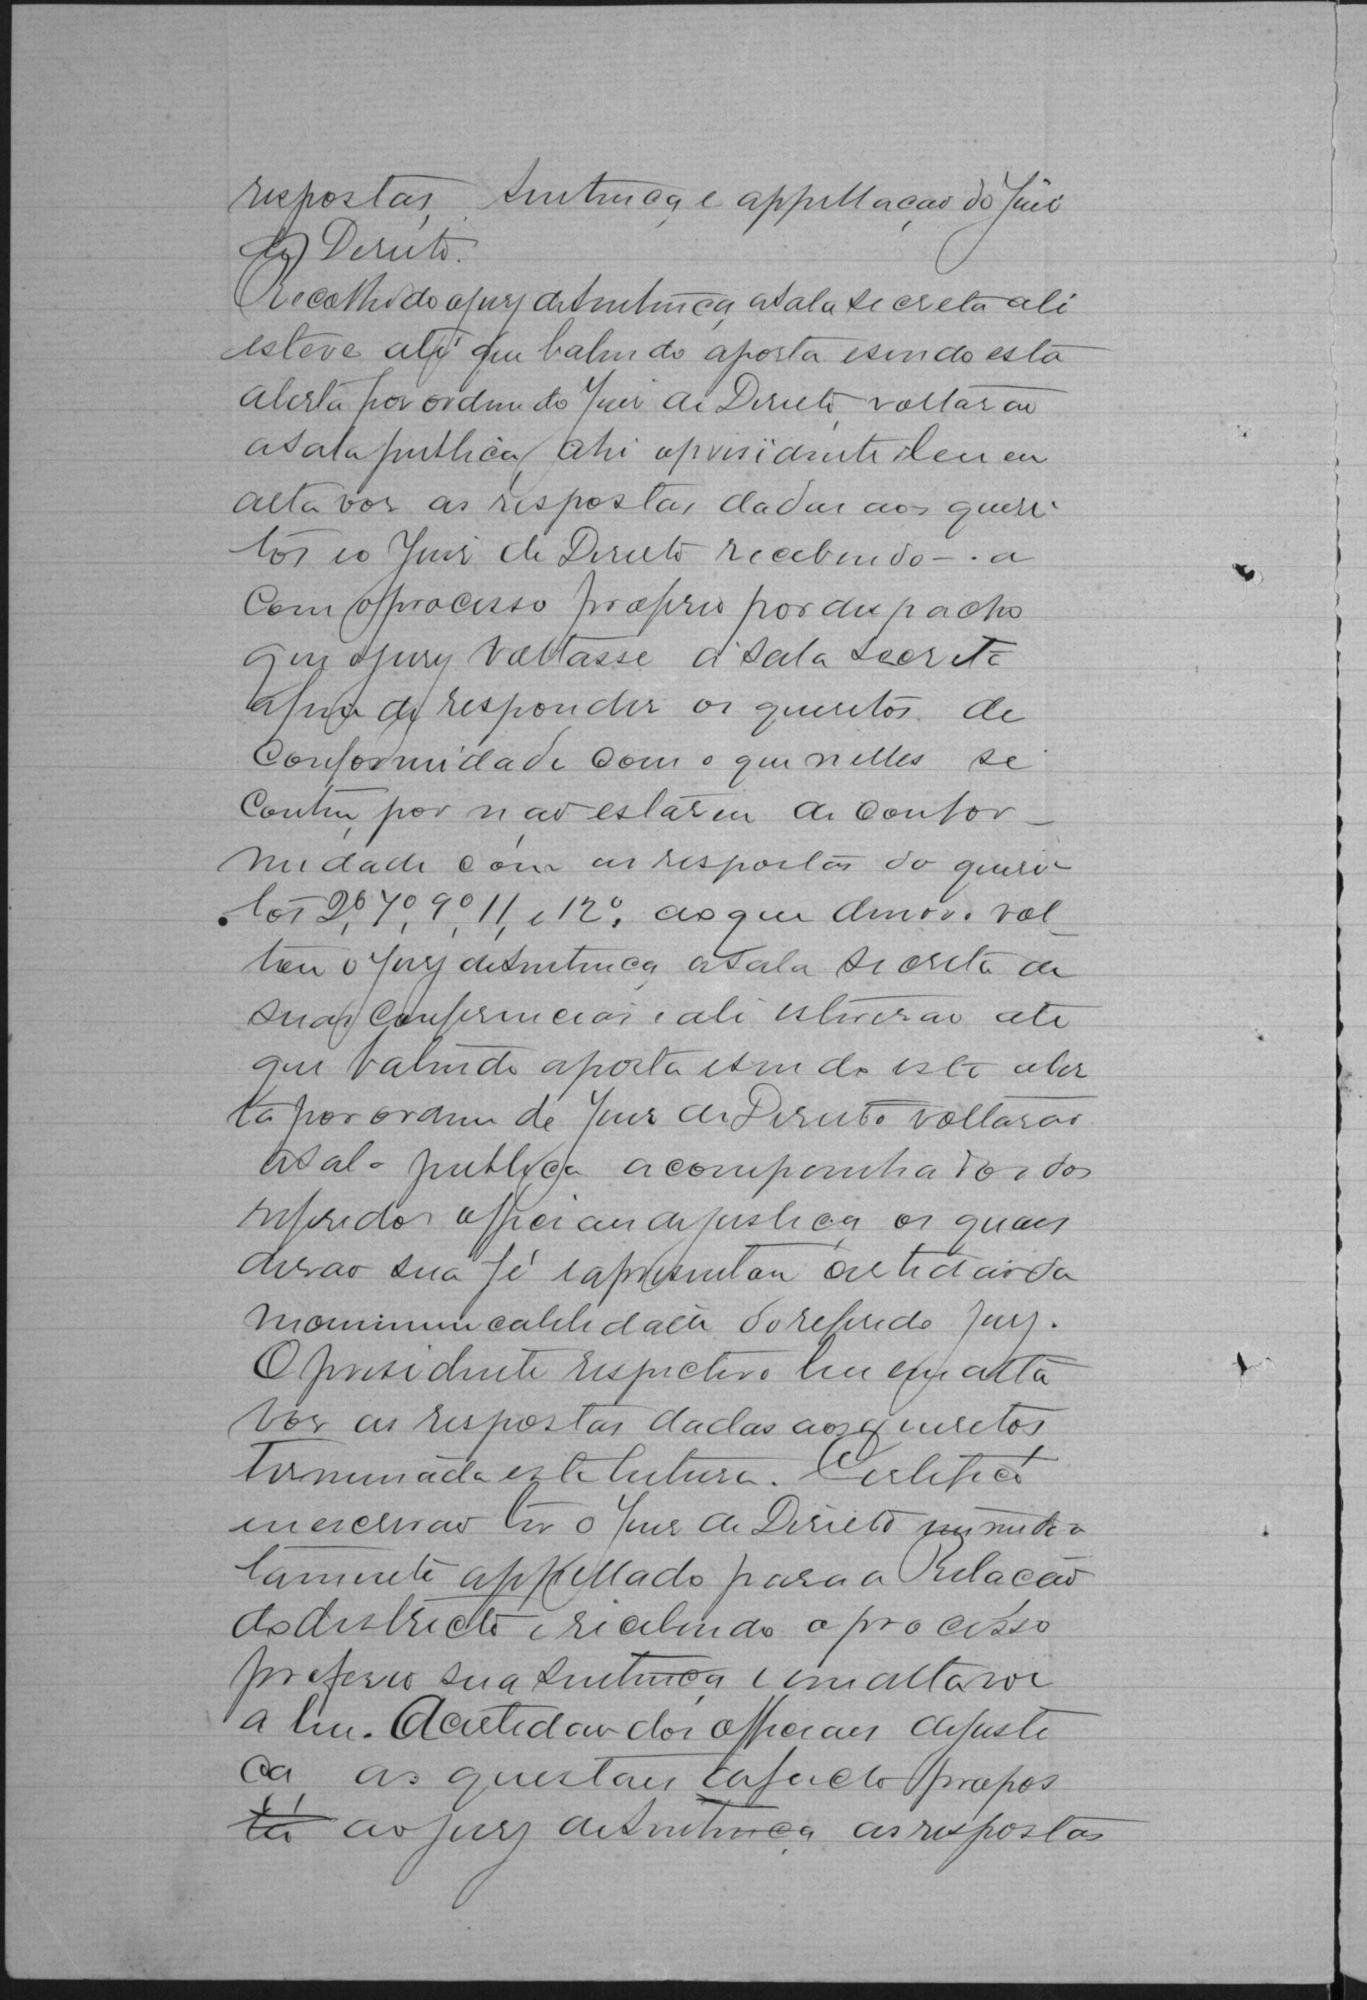 respostas, sentença e appellação do Juiz
de Direito.
Recolhido o jury de sentença a sala secreta ali
esteve até que batendo a porta e sendo esta
aberta por ordem do Juiz de Direito, voltarão
a sala publica, ahi o presidente leu em
alta voz as respostas dadas aos quesi-
tos e o Juiz de Direito recebendo-. a
com o processo proferio por despacho
que o jury voltasse á sala secreta
afim de responder os quesitos de
conformidade com o que nelles se
contem, por não estarem de confor-
midade com as respostas do quesi-
tos 2º, 7º, 9º, 11, e 12º, ao que de novo vol-
tou o Jury de sentença a sala secreta de
suas conferencias e ali estiverão até
que batendo a porta e sendo esta aber
ta por ordem de Juiz de Direito voltarão
a sala publica acompanhados dos
referidos officiaes de justiça os quaes
derão sua fé e apresentou certidão da
incommunicabilidade do referido jury.
O presidente respectivo leu em alta
voz as respostas dadas aos quesitos
terminada esta leitura. Certifico
eu escrivão ter o Juiz de Direito immedia
tamente appellado para a Relação
do districto e recebendo o processo
proferio sua sentença e em alta voz
a leu. A certidão dos officiaes de justi
ça, as questões de facto propos
tas ao jury de sentença as respostas